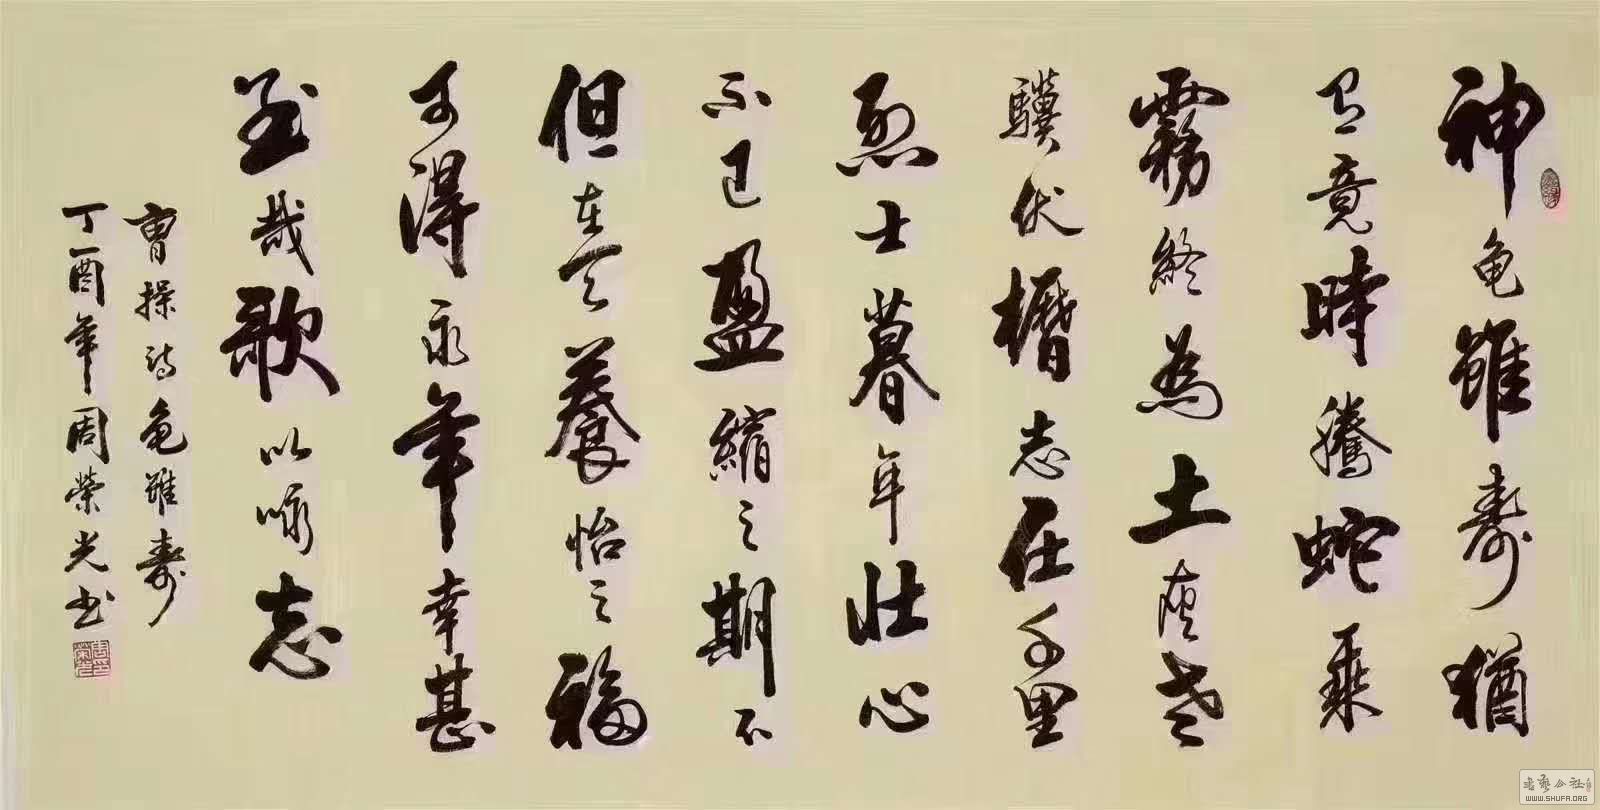 神龟雖壽猶
有竟時騰蛇乘
霧終為土灰老
驥伏櫪志在千里
烈士暮年壯心
不已盈縮之期不
但在天養怡之福
可得永年幸甚
至哉歌以咏志
曹操诗龟雖壽
丁酉年周榮光书
WWW.SHUFA.ORG